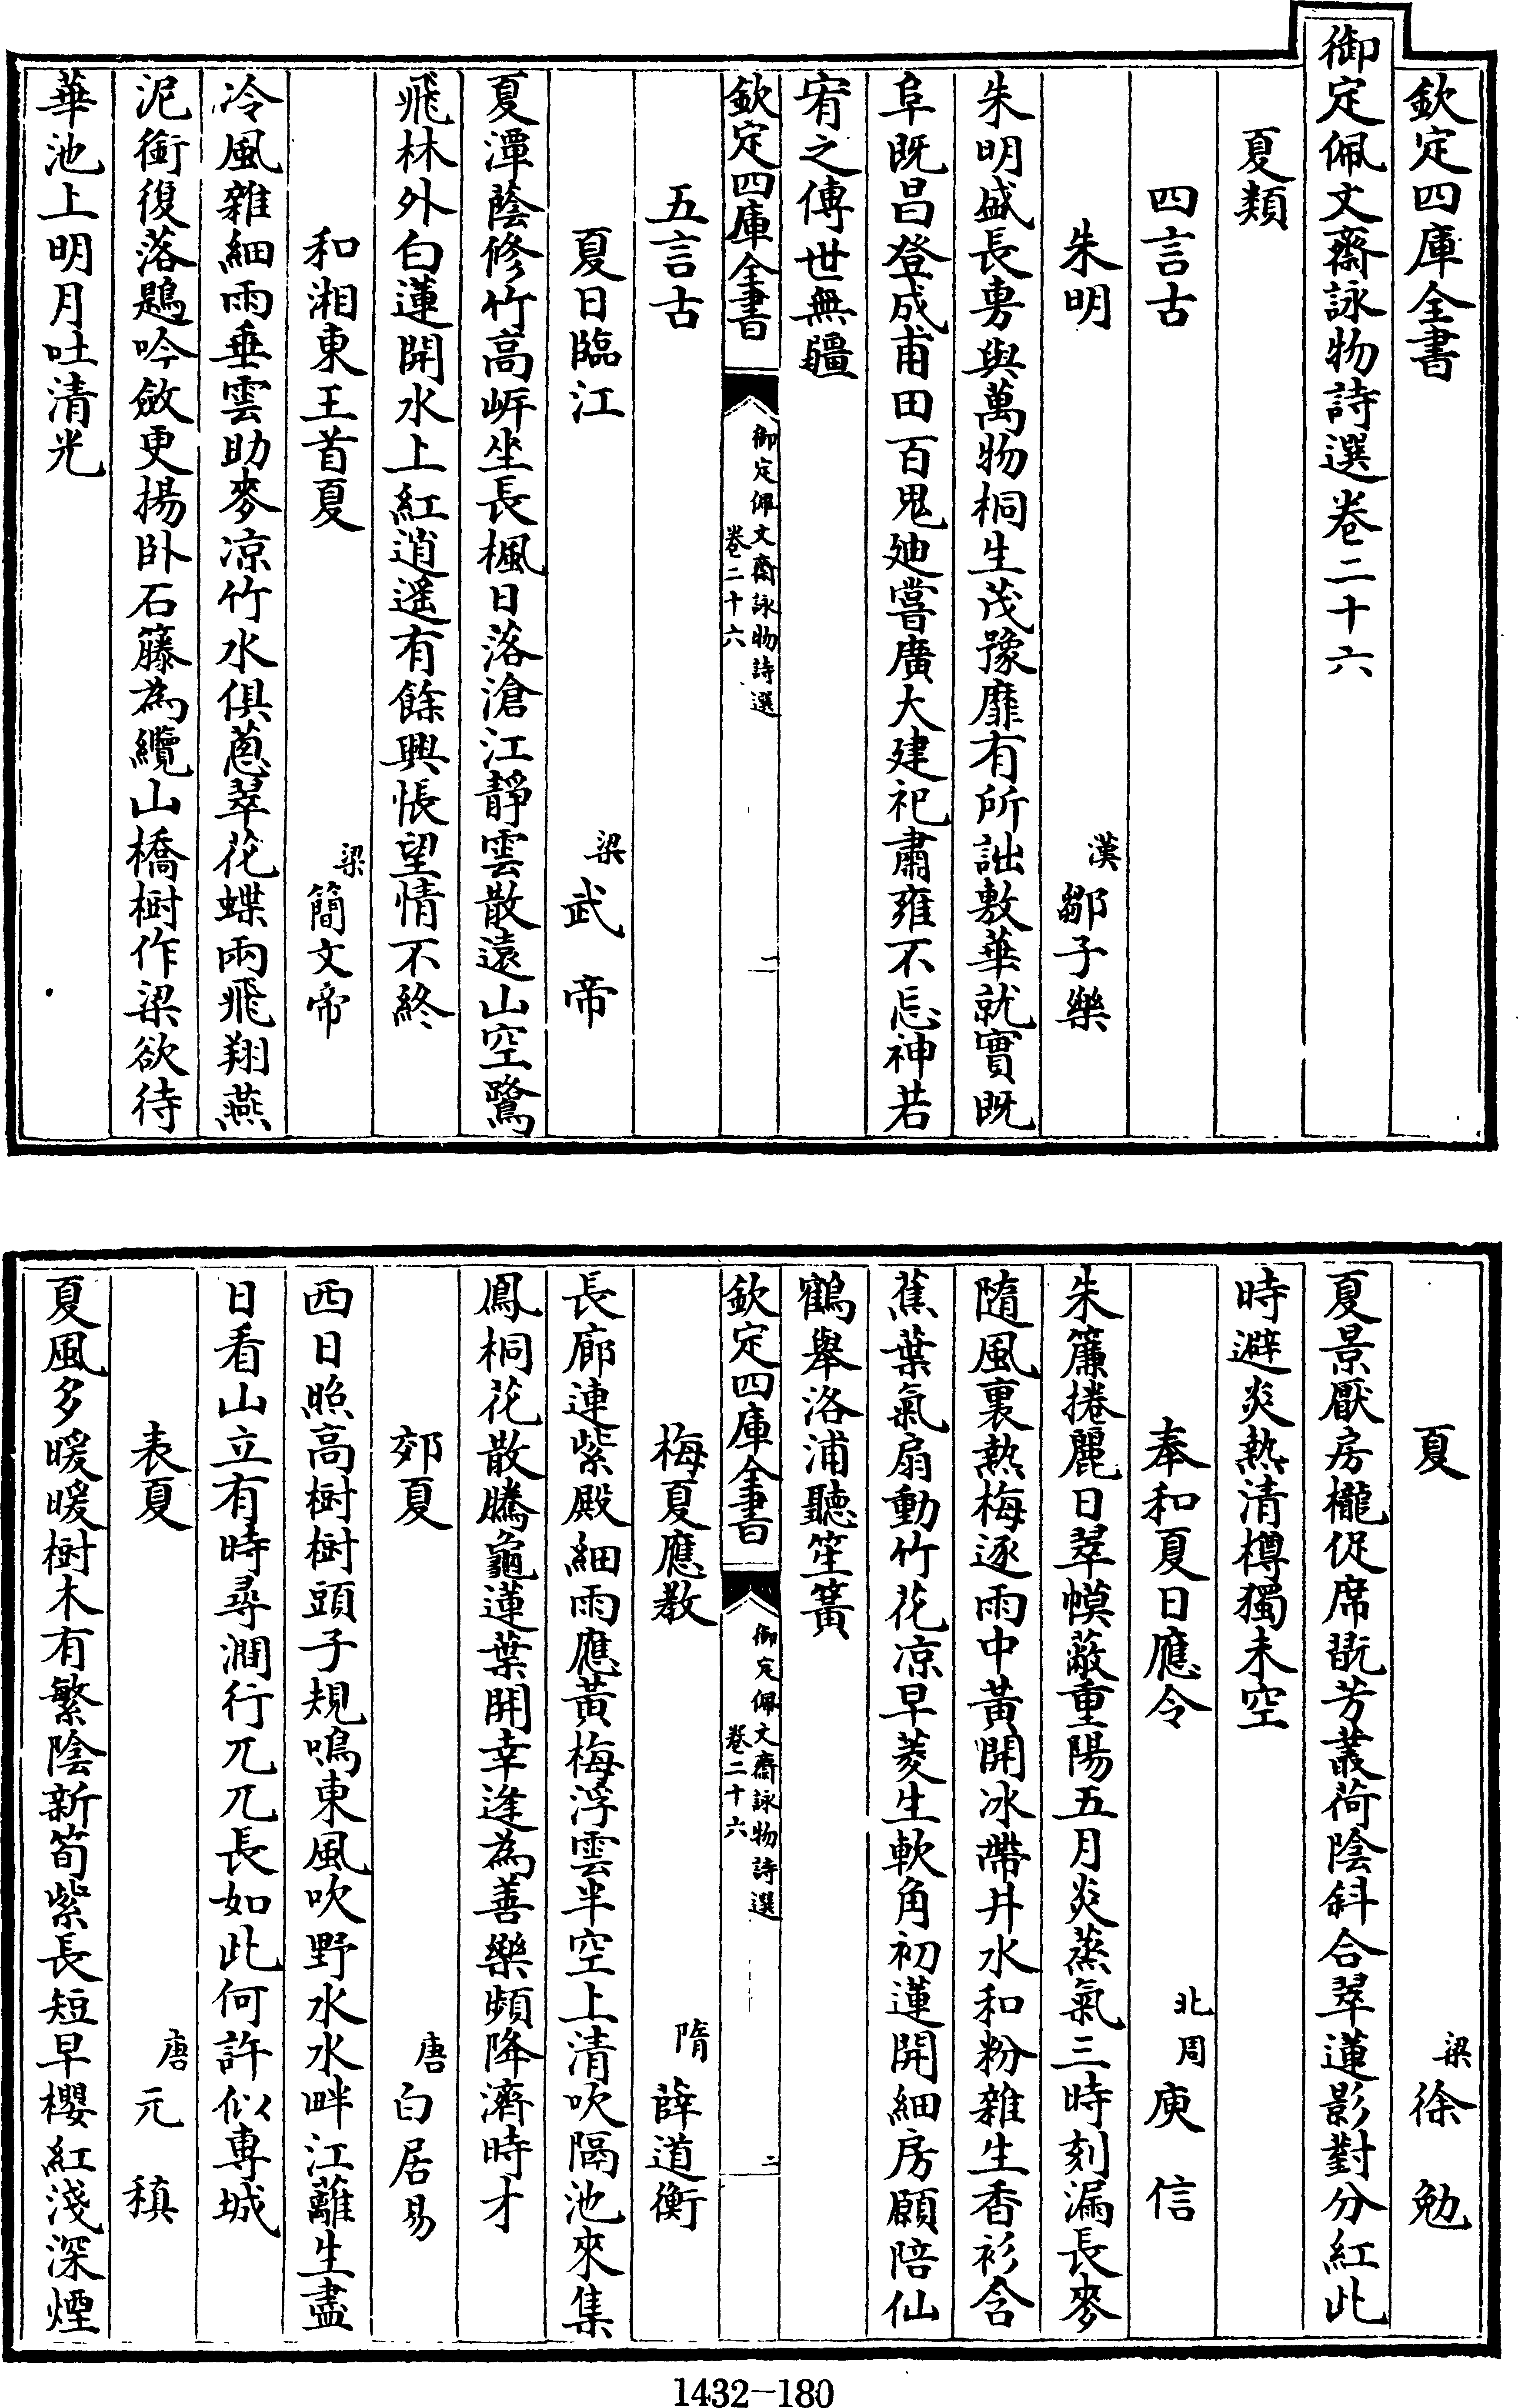 欽定四庫全書
御定佩文齋詠物詩選卷二十六
夏類
四言古
朱明　漢鄒子樂
朱明盛長旉與萬物桐生茂豫靡有所詘敷華就實既
阜既昌登成甫田百鬼廸嘗廣大建祀肅雍不忘神若
宥之傳世無疆
欽定四庫全書
御定佩文齋詠物詩選
卷二十六
一
五言古
夏日臨江　梁武帝
夏潭蔭修竹高岸坐長楓日落滄江靜雲散遠山空鷺
飛林外白蓮開水上紅逍遥有餘興悵望情不終
和湘東王首夏　梁簡文帝
冷風雜細雨垂雲助麥凉竹水俱蔥翠花蝶兩飛翔燕
泥銜復落鶗吟斂更揚卧石籐為纜山橋樹作梁欲待
華池上明月吐清光
夏　梁徐勉
夏景厭房櫳促席翫芳叢荷陰斜合翠蓮影對分紅此
時避炎熱清樽獨未空
奉和夏日應令　北周庾信
朱簾捲麗日翠幙蔽重陽五月炎蒸氣三時刻漏長麥
隨風裏熟梅逐雨中黃開冰帶井水和粉雜生香衫含
蕉葉氣扇動竹花凉早菱生軟角初蓮開細房願陪仙
鶴舉洛浦聽笙簧
欽定四庫全書
御定佩文齋詠物詩選
卷二十六
二
梅夏應教　隋薛道衡
長廊連紫殿細雨應黃梅浮雲半空上清吹隔池來集
鳳桐花散勝龜蓮葉開幸逢為善樂頻降濟時才
郊夏　唐白居易
西日照高樹樹頭子規鳴東風吹野水水畔江蘺生盡
日看山立有時尋澗行兀兀長如此何許似專城
表夏　唐元稹
夏風多暖暖樹木有繁陰新筍紫長短早櫻紅淺深煙
1432-180